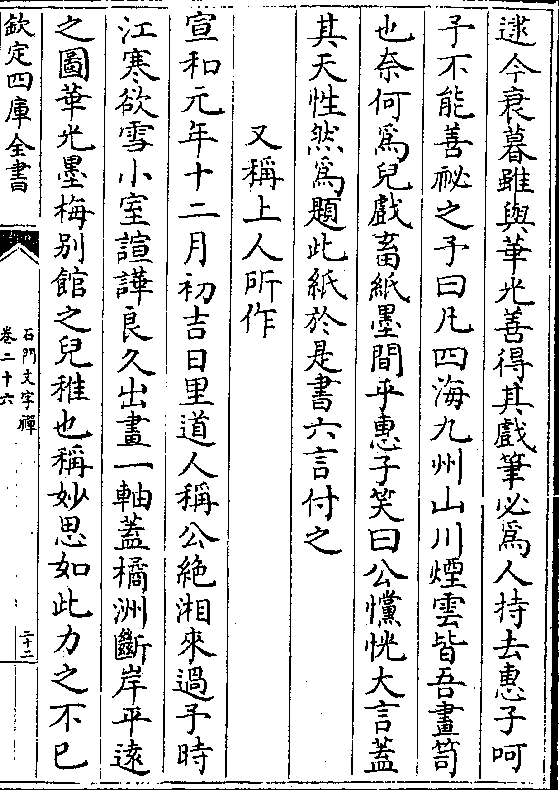 逮今衰暮雖與華光善得其戲筆必爲人持去惠子呵
予不能善祕之予曰凡四海九州山川煙雲皆吾畫笥
也奈何爲兒戲畜紙墨間乎惠子笑曰公戃恍大言蓋
其天性然爲題此紙於是書六言付之
又稱上人所作
宣和元年十二月初吉日里道人稱公絶湘來過予時
江寒欲雪小室諠譁良久出畫一軸蓋橘洲斷岸平逺
之圖華光墨梅别館之兒稚也稱妙思如此力之不已
欽定四庫全書
石門文字禪
卷二十六
二十二